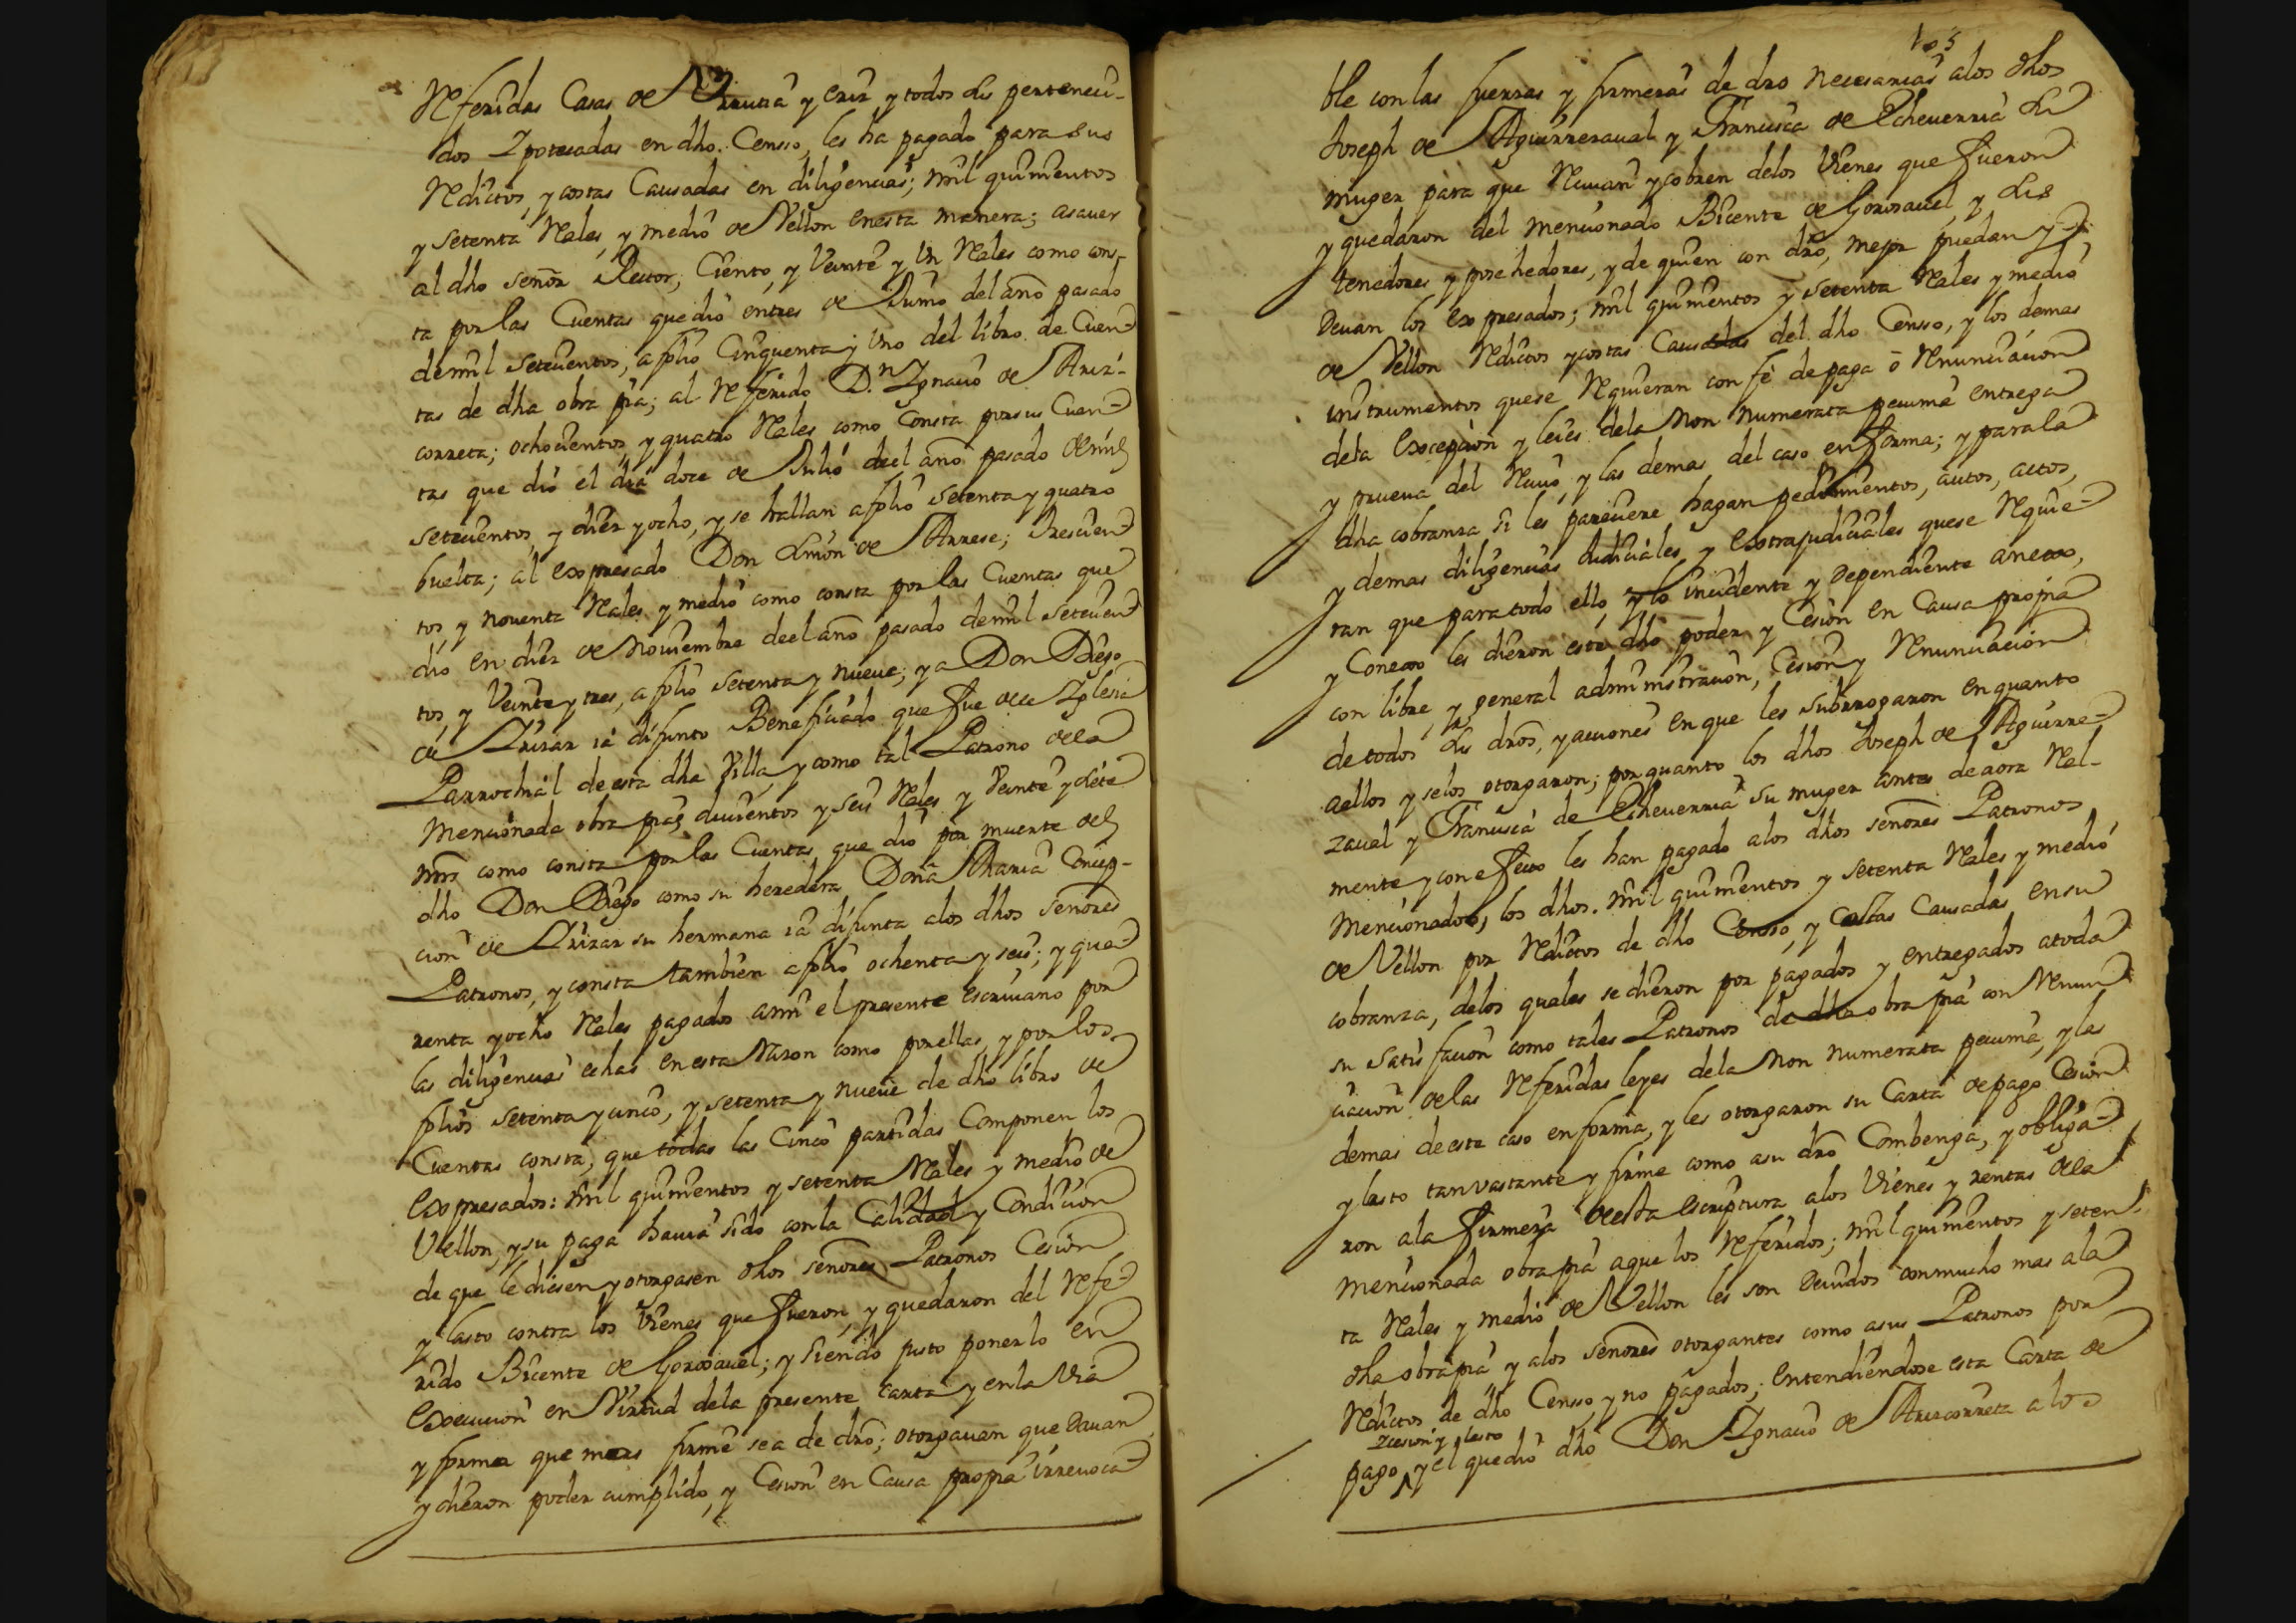 Referidas Casas de Vrrutia y eriz y todos sus pertenecí-
dos Ypotecadas en dho. Censso, les ha pagado para sus
Reditos, y costas Causadas en diligencias; mil quinientos
y setenta Reales, y medio de Vellon en esta manera; asaver
al dho señor Rector, Ciento, y Veinte y Vn Reales como cons-
ta por las Cuentas que dio en tres de Junio del año pasado
de mil setecientos, a folio Cinquenta y Vno del libro de Cuen-
tas de dha obra pia; al Referido D.n Ygnacio de Ariz-
correta; ochocientos, y quatro Reales como Consta por sus Cuen-
tas que dio el dia doce de Julio deel año pasado de mil
setecientos, y diez y ocho, y se hallan a folio setenta y quatro
buelta; al expresado Don Simon de Arrese; trescien-
tos, y noventa Reales y medio como consta por las Cuentas que
dio en diez de Noviembre deel año pasado de mil setecien-
tos, y Veinte y tres, a folio setenta y nueve; y a Don Diego
de Lizizar ia difunto Beneficiado que fue de la Yglesia
Parrochial de esta dha Villa, y como tal Patrono de la
Mencionada obra pia; ducientos y seis Reales y Veinte y siete
mrs como consta por las Cuentas que dio por muerte del
dho Don Diego como su heredera Doña Maria Concep-
cion de Lizizar su hermana ia difunta a los dhos señores
Patronos, y consta tambien a folio ochenta y seis; y qua-
renta y ocho Reales pagados a mi el presente escrivano por
las diligencias echas en esta Razon como por ellas, y por los
folios setenta y cinco, y setenta y nueve de dho libro de
Cuentas consta, que todas las Cinco partidas Componen los
expresados: mil quinientos y setenta Reales y medio de
Vellon, y su paga havia sido con la Calidad y Condicion
de que le diesen y otorgasen dhos señores Patronos Cesion
y lasto contra los Vienes que fueron, y quedaron del Refe-
rido Bicente de Gorosavel; y siendo justo ponerlo en
execucion en Virtud de la presente carta y en la Via
y forma que mas firme sea de dro; otorgavan que davan
y dieron poder cumplido, y Cesion en Causa propia irrevoca-
105
ble con las fuerzas y firmezas de dro necesarias a los dhos
Joseph de Aguirrezaval y Francisca de Echeverria su
muger para que Recivan y cobren de los Vienes que fueron
y quedaron del mencionado Bicente de Gorosavel, y sus
tenedores y posehedores, y de quien con dro, mejor puedan y
Devan los expresados; mil quinientos y setenta Reales y medio
de Vellon Reditos y costas Causadas del dho Censso, y los demas
instrumentos que se Requieran con fe de paga ō Renunciacion
de la Excepcion y leies de la Non Numerata pecunia entrega
y prueva del Recivo, y las demas del caso en forma; y para la
dha cobranza si les pareciere hagan pedimentos, autos, actos,
y demas diligencias Judiciales y Extrajudiciales que se Requie-
ran que para todo ello, y lo incidente y dependiente anexo,
y Conexo les dieron este dho poder y Cesion en Causa propia
con libre, y general administracion, Cesion y Renunciacion
de todos sus dros, y acciones en que les subrrogaron en quanto
a ellos y se los otorgaron; por quanto los dhos Joseph de Aguirre-
zaval y Francisca de Echeverria su muger antes de aora Real-
mente y con efecto les han pagado a los dhos señores Patronos
Mencionados, los dhos. mil quinientos y setenta Reales y medio
de Vellon por Reditos de dho Censso, y Costas Causadas en su
cobranza, de los quales se dieron por pagados y entregados a toda
su satisfacion como tales Patronos de dha obra pia con Renun-
ciacion de las Referidas leyes de la Non numerata pecunia, y las
demas de este caso en forma, y les otorgaron su Carta de pago Cesion
y lasto tan vastante y firme como a su dro Combenga, y obliga-
ron a la firmeza de esta Escriptura a los Vienes y rentas de la
mencionada obra pia a que los Referidos; mil quinientos y seten-
ta Reales y medio de Vellon les son devidos con mucho mas a la
dha obra pia y a los señores otorgantes como a sus Patronos por
Reditos de dho Censso, y no pagados; entendiendose esta Carta de
zcesion y lasto
pago, y el que dio dho Don Ygnacio de Arizcorreta a los